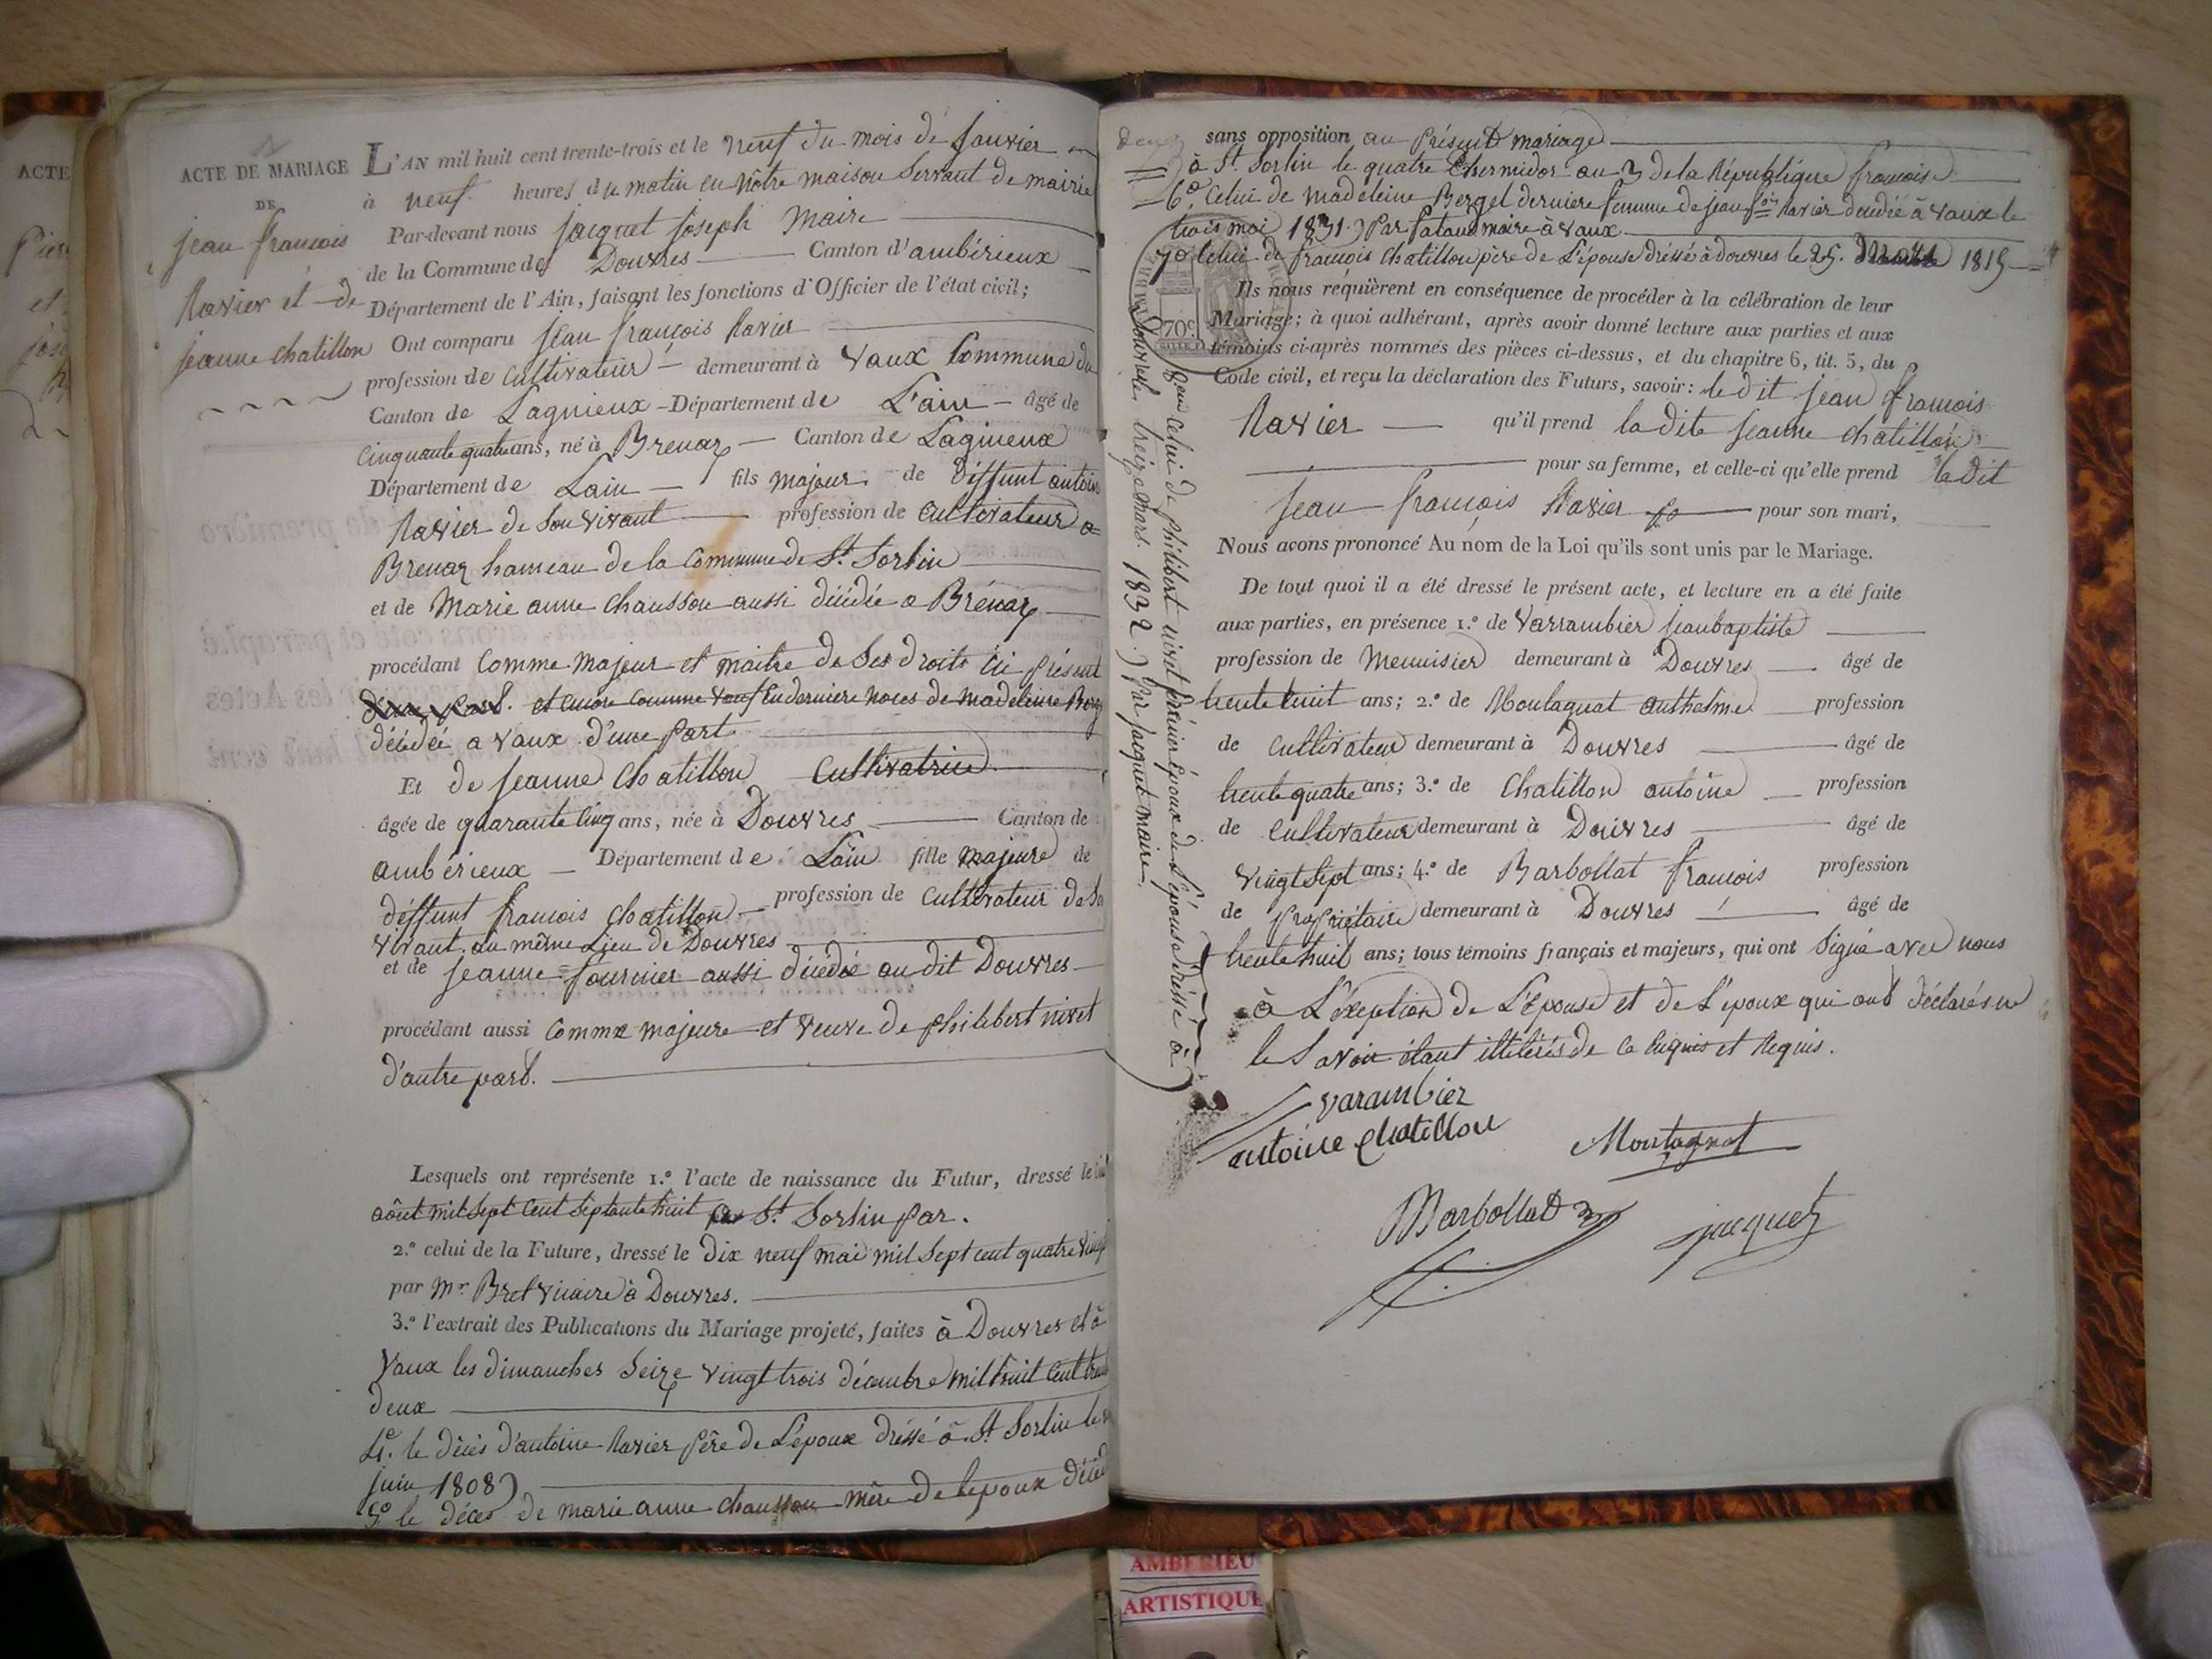 ACTE DE MARIAGE
DE
jean françois
Ravier et de
jeanne chatillon
L'AN mil huit cent trente-trois et le neuf du mois de janvier
à neuf heures du matin en nôtre maison servant de mairie
Par-devant nous jacquet joseph Maire
de la Commune de Douvres Canton d'ambérieux
Département de l'Ain, faisant les fonctions d'Officier de l'état civil;
Ont comparu jean françois Ravier
profession de cultivateur demeurant à Vaux Commune du
Canton de Lagnieux Département de L'ain âgé de
cinquante quatre ans, né à Brenaz Canton de Lagnieux
Département de Lain fils majeur de diffunt antoine
Ravier de son vivant profession de cultivateur a
Brenaz hameau de la Commune de St. Sorlin
et de Marie anne Chausson aussi décédée a Brénaz
procédant Comme majeur et maitre de ses droits ici présent
et encore comme veuf en derniere noces de madeleine
décédée a vaux d'une part
Et de jeanne Chatillon Cultivatrice
âgée de quarante cinq ans, née à Douvres Canton de
ambérieux Département de Lain fille majeure de
déffunt françois Chatillon profession de cultivateur de
vivant au même Lieu de Douvres
et de jeanne fournier aussi décédée au dit Douvres
procédant aussi Comme majeure et veuve de philibert nivet
d'autre part.
Lesquels ont représente 1.º l'acte de naissance du Futur, dressé le
août mil sept cent septante huit St. Sorlin par.
2.º celui de la Future, dressé le dix neuf mai mil sept cent quatre vingt
par Mr. Bret vicaire à Douvres.
3.º l'extrait des Publications du Mariage projeté, faites à Douvres et à
Vaux les dimanches seize vingt trois décembre mil huit cent trente
deux
4.º le décès d'antoine Ravier père de L'époux dréssé à St Sorlin le
juin 1808
5º le décès de marie anne chausson mère de lepoux décéd
sans opposition au présent mariage
à St. Sorlin le quatre thermidor an 3 de la République françoise
6.º Celui de madeleine Bergel derniere femme de jean fçois Ravier décédée à vaux le
trois mai 1831. Par Pataud maire à vaux
7º Celui de françois Chatillon père de L'épouse dréssé à douvres le 25. 1815
Ils nous requièrent en conséquence de procéder à la célébration de leur
Mariage; à quoi adhérant, après avoir donné lecture aux parties et aux
témoins ci-après nommés des pièces ci-dessus, et du chapitre 6, tit. 5, du
Code civil, et reçu la déclaration des Futurs, savoir: le dit jean françois
Ravier qu'il prend la dite jeanne chatillon
pour sa femme, et celle-ci qu'elle prend le dit
jean françois Ravier pour son mari,
Nous avons prononcé Au nom de la Loi qu'ils sont unis par le Mariage.
De tout quoi il a été dressé le présent acte, et lecture en a été faite
aux parties, en présence 1.º de Varrambier jean baptiste
profession de Menuisier demeurant à Douvres âgé de
trente huit ans; 2.º de Montagnat anthelme profession
de cultivateur demeurant à Douvres âgé de
trente quatre ans; 3.º de Chatillon antoine profession
de cultivateur demeurant à Douvres âgé de
vingt sept ans; 4.º de Barbollat françois profession
de propriétaire demeurant à Douvres âgé de
trente huit ans; tous témoins français et majeurs, qui ont signé avec nous
à L'éxeption de L'épouse et de L'epoux qui ont déclarés ne
le savoir étant illitérés de ce enquis et Requis.
8º celui de philibert nivet prémier époux de L'épouse dréssé à
Douvres le treize mars 1832. Par jacquet maire.
70c
varambier
antoine chatillon
Montagnat
Barbollat
jacquet
AMBERIEU
ARTISTIQUE